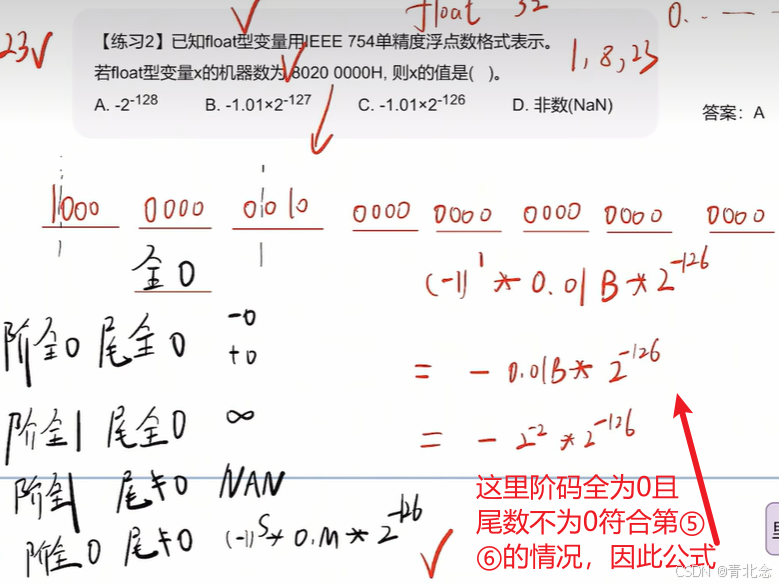 float 32
0..——
23√
1,8,23
【练习2】已知float型变量用IEEE 754单精度浮点数格式表示。
若float型变量x的机器数为 8020 0000H, 则x的值是( )。
A. -2^-128 B. -1.01×2^-127 C. -1.01×2^-126 D. 非数(NaN)
答案：A
1000 0000 0010 0000 0000 0000 0000 0000
全0
(-1)^1 * 0.01B * 2^-126
阶全0 尾全0 -0
+0
= - 0.01B * 2^-126
阶全1 尾全0 ∞
= - 2^-2 * 2^-126
阶全1 尾≠0 NAN
阶全0 尾≠0 (-1)^S * 0.M * 2^-126 √
这里阶码全为0且
尾数不为0符合第⑤
⑥的情况，因此公式
CSDN @青北念